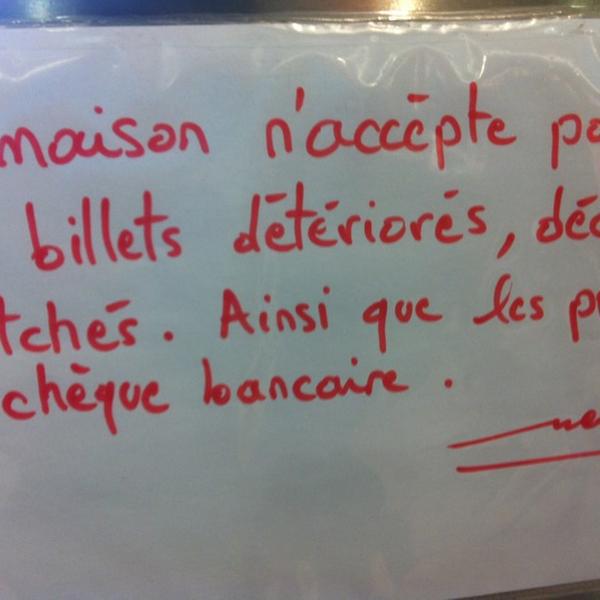 maison n'accépte pa
billets détériorés, déc
tchés. Ainsi que les p
chèque bancaire.